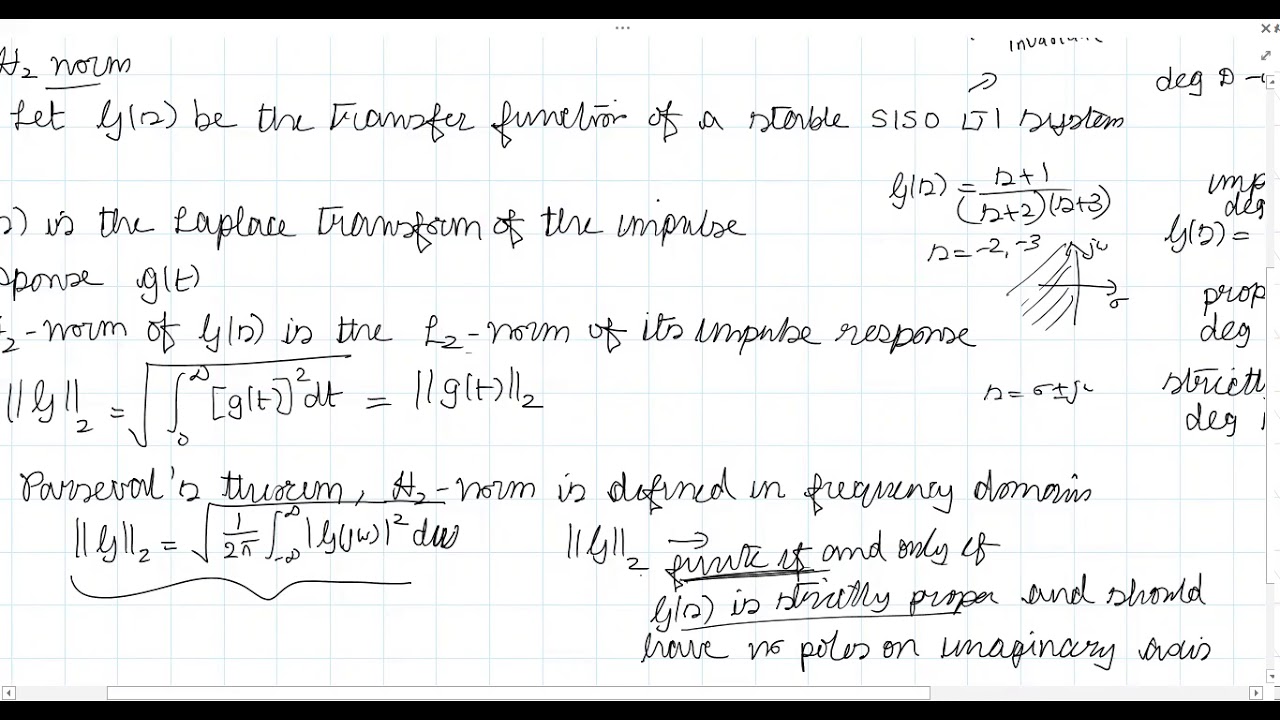 H₂ norm
Let G(s) be the transfer function of a stable SISO LTI system
s) is the Laplace transform of the impulse
sponse g(t)
₂-norm of G(s) is the L₂-norm of its impulse response
||G||₂ = √∫₀^∞ [g(t)]² dt = ||g(t)||₂
Parseval's theorem, H₂-norm is defined in frequency domain
||G||₂ = √(1/2π ∫₋∞^∞ |G(jω)|² dω)
||G||₂ → finite if and only if
G(s) is strictly proper and should
have no poles on imaginary axis
G(s) = (s+1)/((s+2)(s+3))
s = -2, -3
jω
σ
s = σ ± jω
deg D
imp
deg
G(s) =
prop
deg
strictl
deg